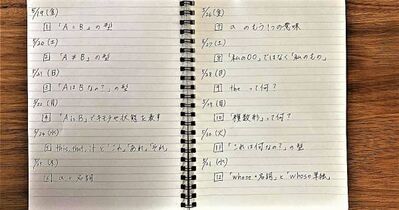 5/19 (金)
1 「A = B」の型
5/20 (土)
2 「A ≠ B」の型
5/21 (日)
3 「AはBなの?」の型
(月)
4 「A is B」でキモチや状態を表す
5/24 (水)
5 this, that, itと「これ」「あれ」「それ」
(木)
6 a + 名詞
5/26 (金)
7 a のもう1つの意味
5/27 (土)
8 「私の〇〇」ではなく「私のもの」
(日)
9 the って何?
(月)
10 「複数形」って何?
(火)
11 「これは何なの?」の型
(水)
12 "whose+名詞"と"whose単独"